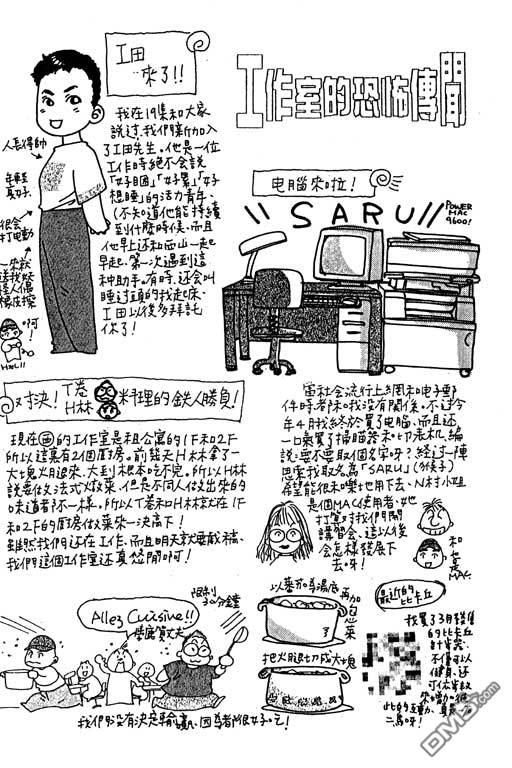 工作室的恐怖傳聞
工田
來了!!
我在19集和大家
說過,我們新加入
了工田先生。他是一位
工作時絕不會說
「好困」「好累」「好
想睡」的活力青年。
(不知道他能持續
到什麼時候。而且
他早上還和西山一起
早起。第一次遇到這
種助手。有時,還會叫
睡过頭的我起床。
工田以後多拜託
你了!
人長得帥
年輕
真好。
很会
打电動
啊!
电腦來啦!
SARU
POWER
MAC
9600!
當社会流行上網和电子郵
件時都和我没有關係。不过今
年4月我終於買了电腦。而且还
一口氣買了掃瞄器和印表机。編
說:要不要取個名字呀?經过一陣
思索我取名為「SARU」(猴子)
希望能很和樂地用下去。N村小姐
是個MAC使用者,她
打算对我們開
講習会。這以後
会怎樣發展下
去呀!
和
也是
MAC。
对決!T卷
H林
料理的鉄人勝負!
現在西的工作室是租公寓的1F和2F
所以這裏有2個廚房。前幾天H林拿了一
大塊火腿來。大到根本吃不完。所以H林
說要做法式火鍋菜。但是不同人做出來的
味道都不一樣。所以T卷和H林就在1F
和2F的廚房做菜來一決高下!
雖然我們还在工作,而且明天就要截稿。
我們這個工作室还真悠閒啊!
限制
30分鐘
Allez Cuisine!!
我們没有決定輸贏。因為都很好吃!
以蕃茄為湯底
再加
包心菜
把火腿切成大塊
最近的
比卡丘
我買了3月發售
的比卡丘
計步器。
不僅可以
健身,还
DM5.com